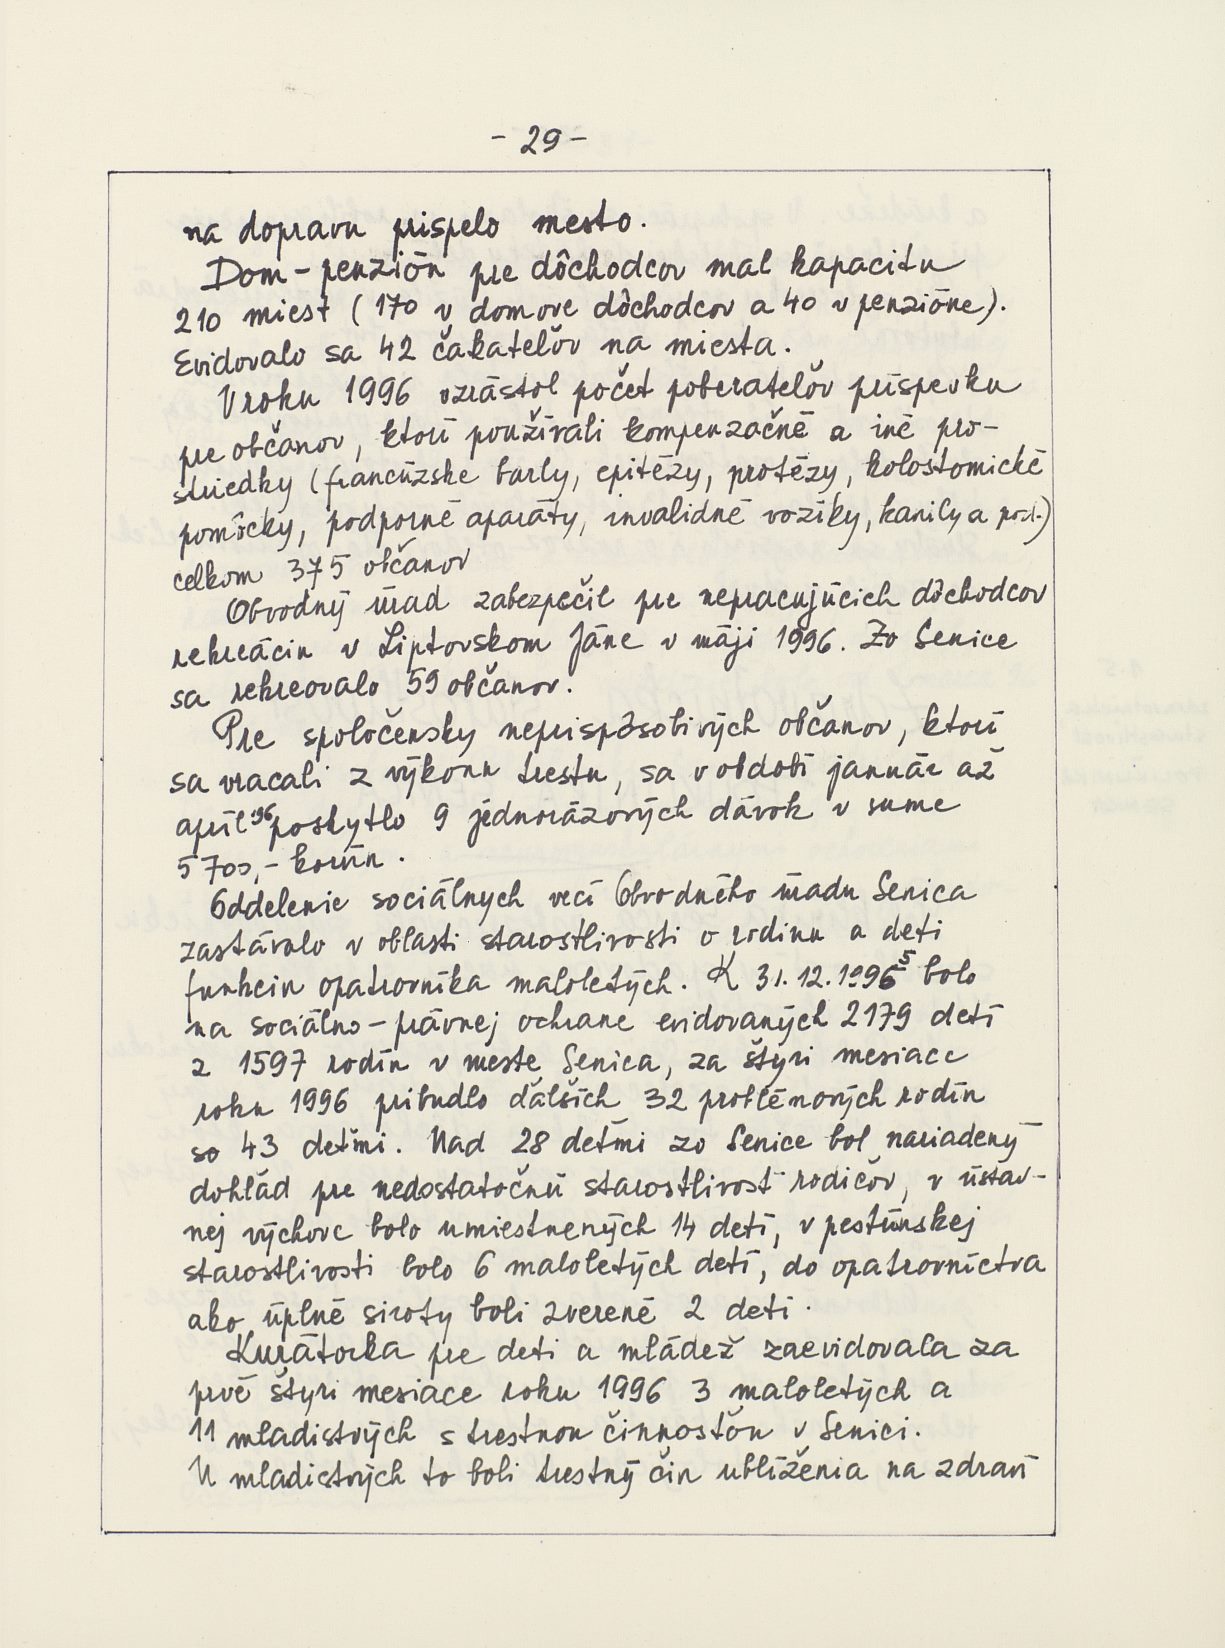 - 29 -
na dopravu prispelo mesto.
Dom - penzión pre dôchodcov mal kapacitu
210 miest ( 170 v domove dôchodcov a 40 v penzióne).
Evidovalo sa 42 čakateľov na miesta.
V roku 1996 vzrástol počet poberateľov príspevku
pre občanov, ktorí používali kompenzačné a iné pro-
striedky (francúzske barly, epitézy, protézy, kolostomické
pomôcky, podporné aparáty, invalidné vozíky, kanily a pod.)
celkom 375 občanov
Obvodný úrad zabezpečil pre nepracujúcich dôchodcov
rekreáciu v Liptovskom Jáne v máji 1996. Zo Senice
sa rekreovalo 59 občanov.
Pre spoločensky neprispôsobivých občanov, ktorí
sa vracali z výkonu trestu, sa v období január až
apríl '96 poskytlo 9 jednorázových dávok v sume
5 700,- korún.
Oddelenie sociálnych vecí Obvodného úradu Senica
zastávalo v oblasti starostlivosti o rodinu a deti
funkciu opatrovníka maloletých. K 31. 12. 1996 5 bolo
na sociálno - právnej ochrane evidovaných 2179 detí
z 1597 rodín v meste Senica, za štyri mesiace
roku 1996 pribudlo ďalších 32 problémových rodín
so 43 deťmi. Nad 28 deťmi zo Senice bol nariadený
dohľad pre nedostatočnú starostlivosť rodičov, v ústav-
nej výchove bolo umiestnených 14 detí, v pestúnskej
starostlivosti bolo 6 maloletých detí, do opatrovníctva
ako úplné siroty boli zverené 2 deti.
Kurátorka pre deti a mládež zaevidovala za
prvé štyri mesiace roku 1996 3 maloletých a
11 mladistvých s trestnou činnosťou v Senici.
U mladistvých to boli trestný čin ublíženia na zdraví